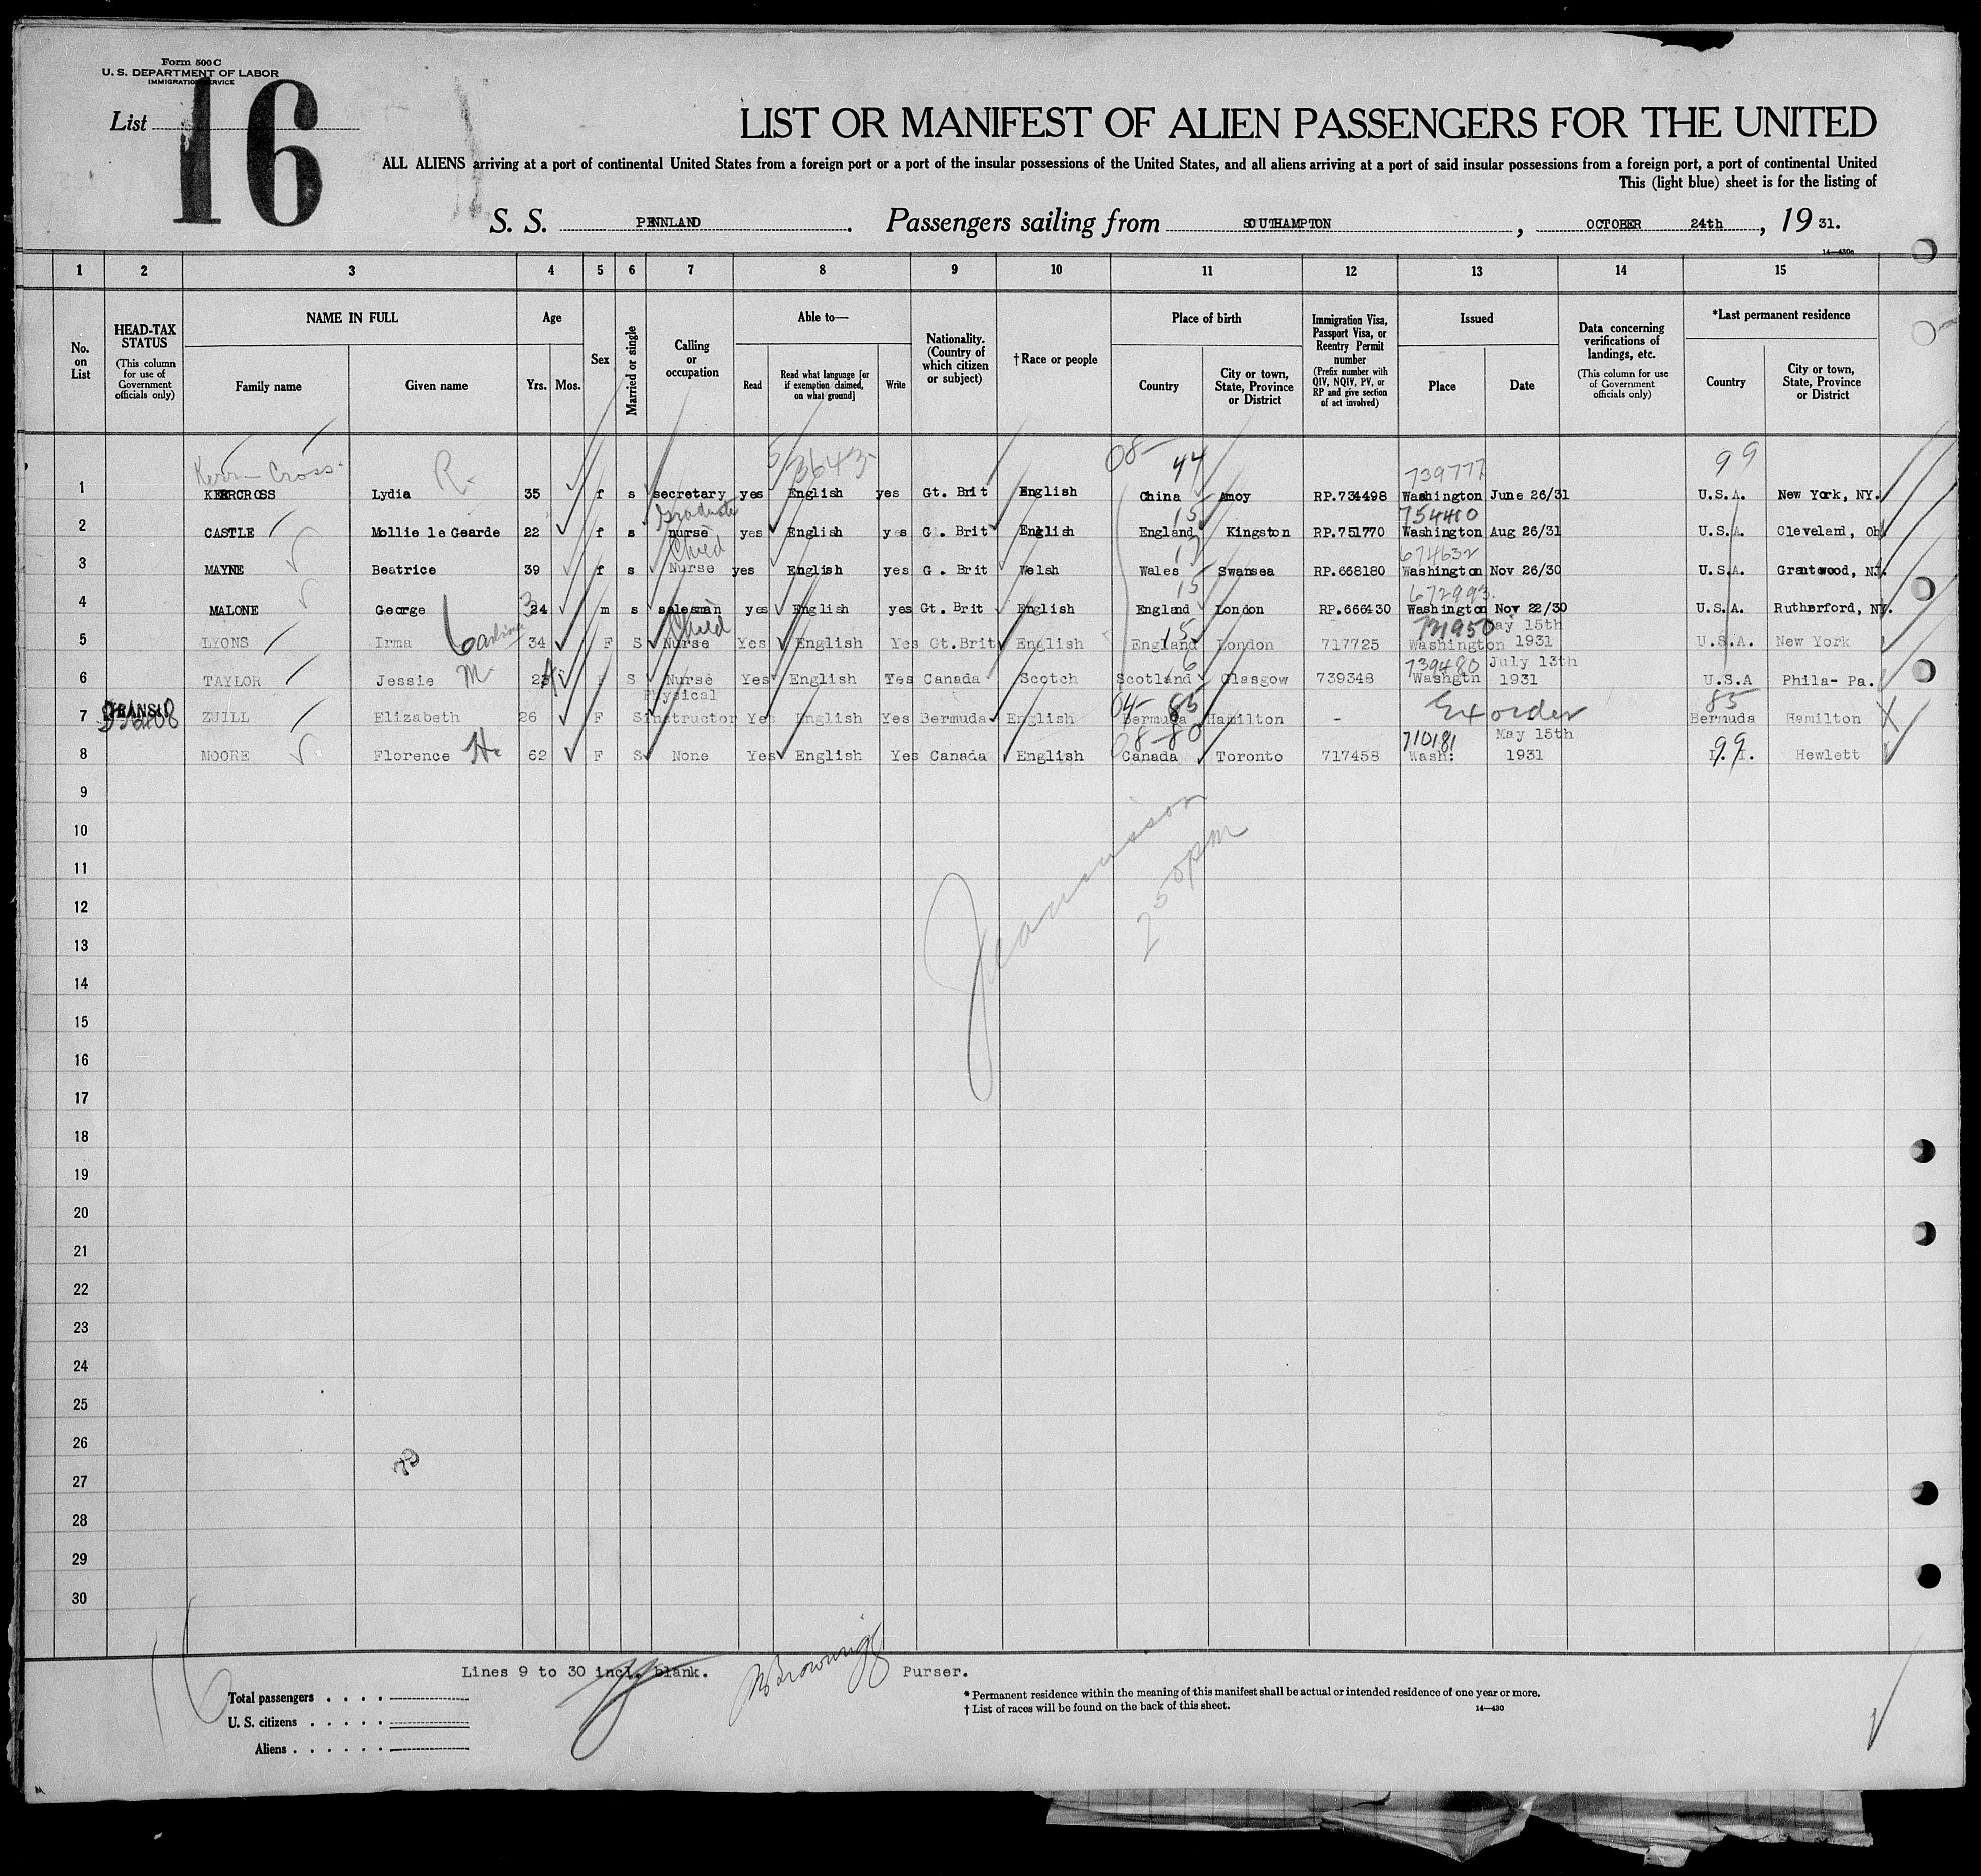 Form 500 C
U. S. DEPARTMENT OF LABOR
IMMIGRATION SERVICE
List 16
LIST OR MANIFEST OF ALIEN PASSENGERS FOR THE UNITED
ALL ALIENS arriving at a port of continental United States from a foreign port or a port of the insular possessions of the United States, and all aliens arriving at a port of said insular possessions from a foreign port, a port of continental United
This (light blue) sheet is for the listing of
S. S. PENNLAND. Passengers sailing from SOUTHAMPTON, OCTOBER 24th, 19 31.
14—430a
1 2 3 4 5 6 7 8 9 10 11 12 13 14 15
No. on List
HEAD-TAX STATUS (This column for use of Government officials only)
NAME IN FULL
Family name
Given name
Age
Yrs. Mos.
Sex
Married or single
Calling or occupation
Able to—
Read
Read what language [or if exemption claimed, on what ground]
Write
Nationality. (Country of which citizen or subject)
† Race or people
Place of birth
Country
City or town, State, Province or District
Immigration Visa, Passport Visa, or Reentry Permit number (Prefix number with QIV, NQIV, PV, or RP and give section of act involved)
Issued
Place
Date
Data concerning verifications of landings, etc. (This column for use of Government officials only)
*Last permanent residence
Country
City or town, State, Province or District
Kerr-Cross R. 5/3643 08- 44 739777 99
1 KERRCROSS Lydia 35 f s secretary yes English yes Gt. Brit English China Amoy RP.734498 Washington June 26/31 U.S.A. New York, NY.
Graduate 15 754410
2 CASTLE Mollie le Gearde 22 f s nurse yes English yes G. Brit English England Kingston RP.751770 Washington Aug 26/31 U.S.A. Cleveland, Oh
Child 13 674632
3 MAYNE Beatrice 39 f s Nurse yes English yes G. Brit Welsh Wales Swansea RP.668180 Washington Nov 26/30 U.S.A. Grantwood, NJ.
15 672993
4 MALONE George 24 m s salesman yes English yes Gt. Brit English England London RP.666430 Washington Nov 22/30 U.S.A. Rutherford, NY.
Child 15 731950 May 15th
5 LYONS Irma 34 F S Nurse Yes English Yes Gt.Brit English England London 717725 Washington 1931 U.S.A. New York
M 6 739480 July 13th
6 TAYLOR Jessie F S Nurse Yes English Yes Canada Scotch Scotland Glasgow 739348 Washgtn 1931 U.S.A Phila- Pa.
TRANSIT Physical 04- 85 Ex order 85
7 ZUILL Elizabeth 26 F S instructor Yes English Yes Bermuda English Bermuda Hamilton - Bermuda Hamilton
08-80 710181 May 15th 99
8 MOORE Florence He 62 F S None Yes English Yes Canada English Canada Toronto 717458 Wash: 1931 L.I. Hewlett
9
10
11
12
13
14
15
16
17
18
19
20
21
22
23
24
25
26
27
28
29
30
250pm
16
Lines 9 to 30 incl. blank. Browning Purser.
Total passengers
U. S. citizens
Aliens
* Permanent residence within the meaning of this manifest shall be actual or intended residence of one year or more.
† List of races will be found on the back of this sheet.
14—430